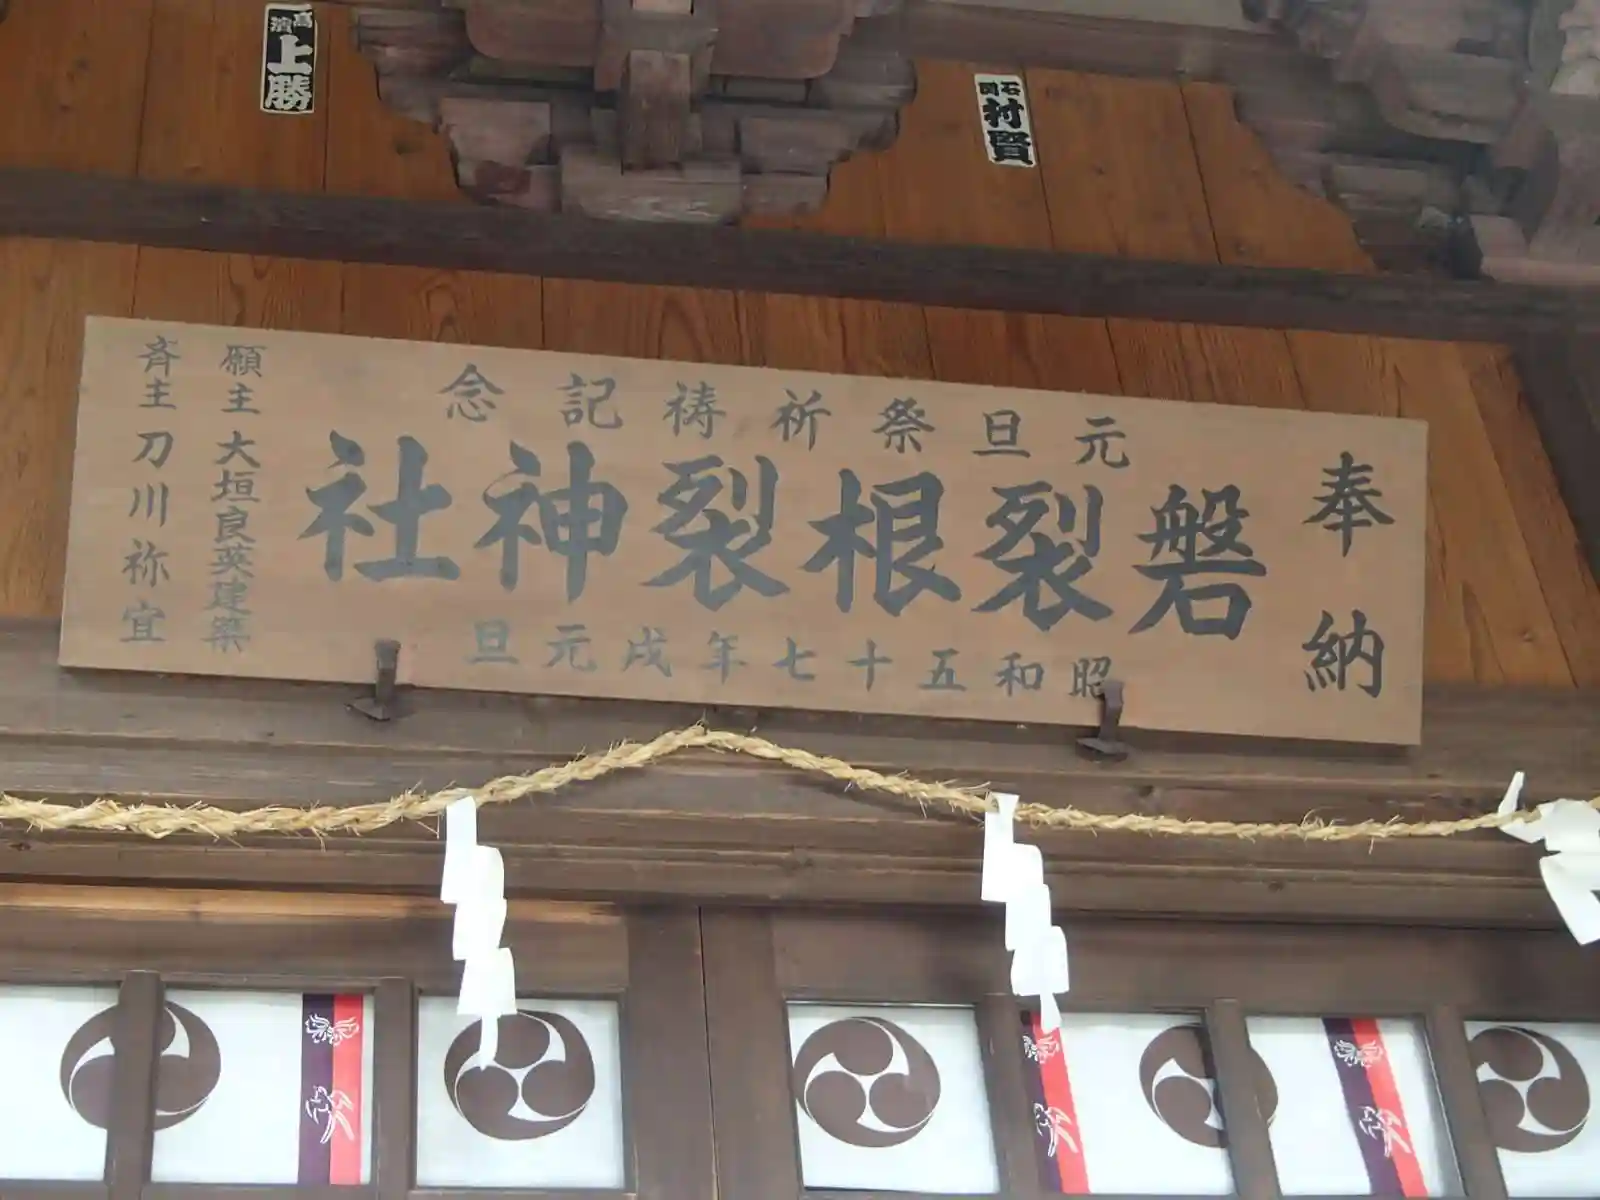 奉納
元旦祭祈祷記念
磐裂根裂神社
昭和五十七年戌元旦
願主 大垣良英建築
斉主 刀川祢宜
高濱 上勝
石関 村賢